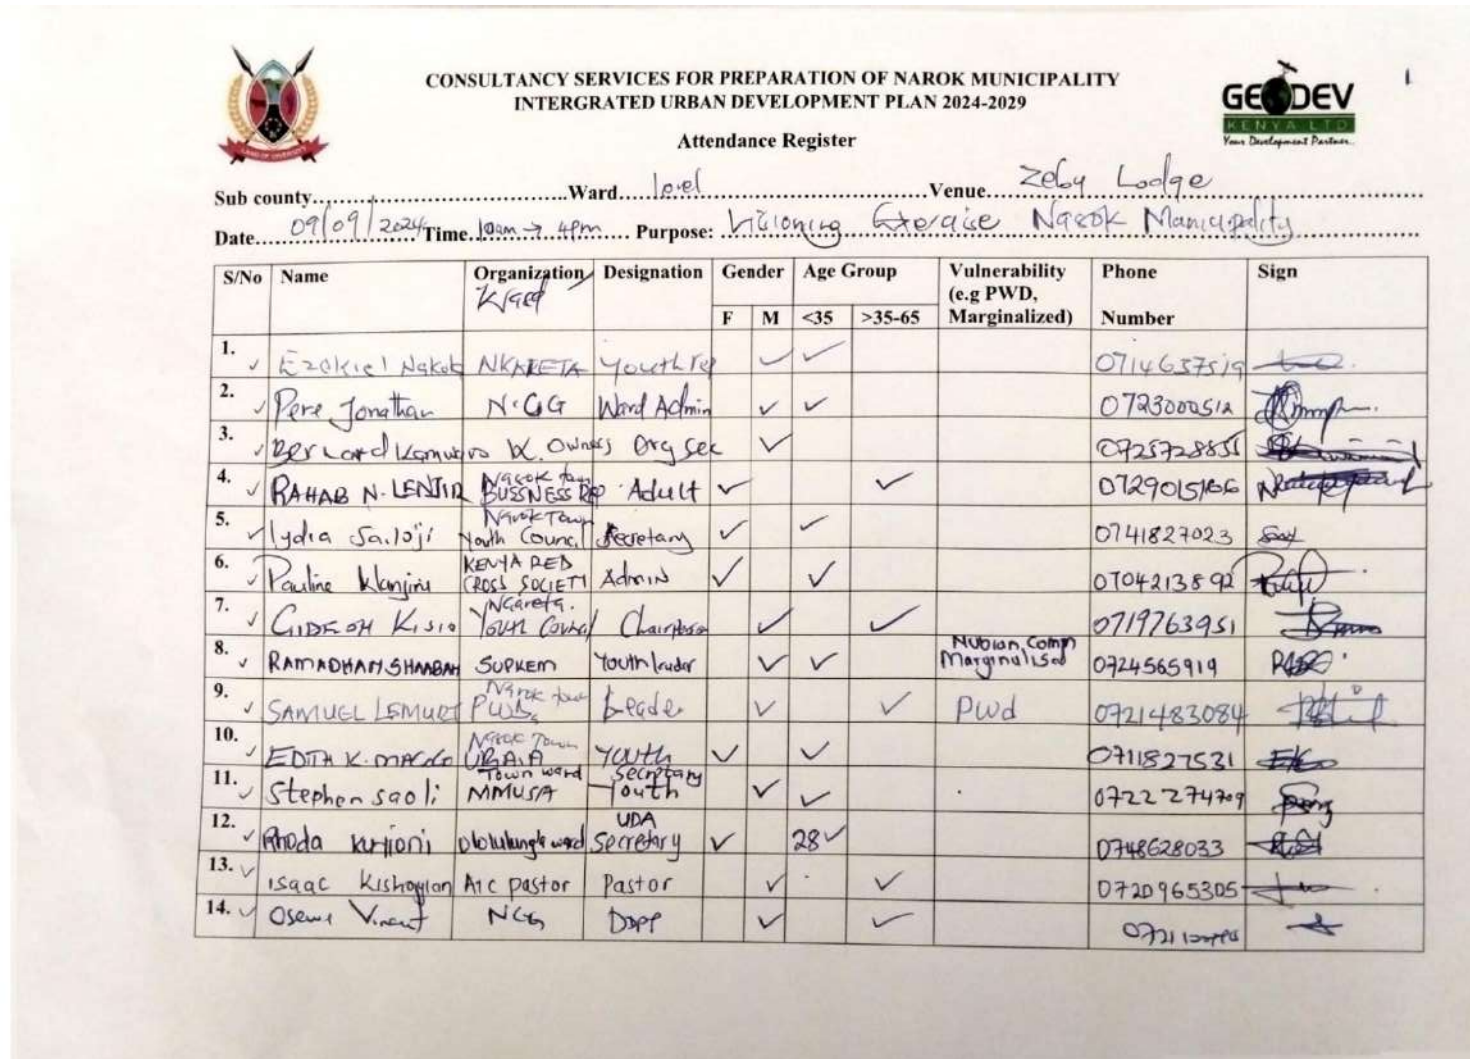 1
CONSULTANCY SERVICES FOR PREPARATION OF NAROK MUNICIPALITY
INTERGRATED URBAN DEVELOPMENT PLAN 2024-2029
GEODEV
KENYA LTD
Your Development Partner.
Attendance Register
Sub county.......Ward.... level .......Venue... Zeby Lodge
Date... 09/09/2024 Time. 10am → 4pm ... Purpose: Visioning Exercise Narok Municipality
S/No Name Organization/ Designation Gender Age Group Vulnerability (e.g PWD, Marginalized) Phone Number Sign
F M <35 >35-65
1. ✓ Ezekiel Nakok NKARETA Youth rep ✓ ✓ 0714637519
2. ✓ Pere Jonathan N.C.G Ward Admin ✓ ✓ 0723000512
3. ✓ Bernard Owners Org sec ✓ 0725728855
4. ✓ RAHAB N. Narok town BUSSNESS REP Adult ✓ ✓
5. ✓ Lydia Sailoji Narok Town Youth Council Secretary ✓ ✓ 0741827023
6. ✓ Pauline KENYA RED CROSS SOCIETY Admin ✓ ✓ 0704213892
7. ✓ GIDEON Kisio Ngareta. Youth Council Chairperson ✓ ✓ 0719763951
8. ✓ RAMADHAN SHAABAN SUPKEM Youth leader ✓ ✓ Nubian Comm Marginalised 0724565919
9. ✓ SAMUEL Narok town PWDs Leader ✓ ✓ PWd 0721483084
10. ✓ EDITH K. Narok Town Youth ✓ ✓ 0711827531
11. ✓ Stephen saoli Town ward MMUSA Secretary Youth ✓ ✓ 0722274709
12. ✓ Rhoda Ololulung'a ward UDA Secretary ✓ 28 ✓ 0748628033
13. ✓ isaac AIC pastor Pastor ✓ ✓ 0720965305
14. ✓ Vincent NCG ✓ ✓